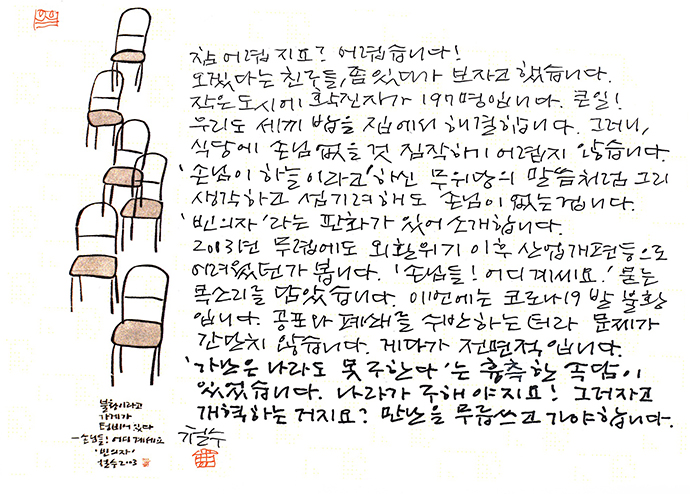 참 어렵지요? 어렵습니다!
오겠다는 친구들, 좀 있다가 보자고 했습니다.
작은 도시에 확진자가 197명입니다. 큰일!
우리도 세끼 밥을 집에서 해결합니다. 그러니,
식당에 손님 없을 것 짐작하기 어렵지 않습니다.
'손님이 하늘이라고' 하신 무위당의 말씀처럼 그리
생각하고 섬기려 해도 손님이 없는겁니다.
'빈의자'라는 판화가 있어 소개합니다.
2003년 무렵에도 외환위기 이후 산업개편등으로
어려웠던가 봅니다. '손님들! 어디 계세요.' 묻는
목소리를 담았습니다. 이번에는 코로나19 발 불황
입니다. 공포와 폐쇄를 수반하는 터라 문제가
간단치 않습니다. 게다가 전면적입니다.
'가난은 나라도 못 구한다'는 흉측한 속담이
있었습니다. 나라가 구해야지요! 그러자고
개혁하는 거지요? 만난을 무릅쓰고 가야합니다.
철수
불황이라고
가게가
텅비어 있다
-손님들! 어디 계세요
'빈의자'
철수 2003